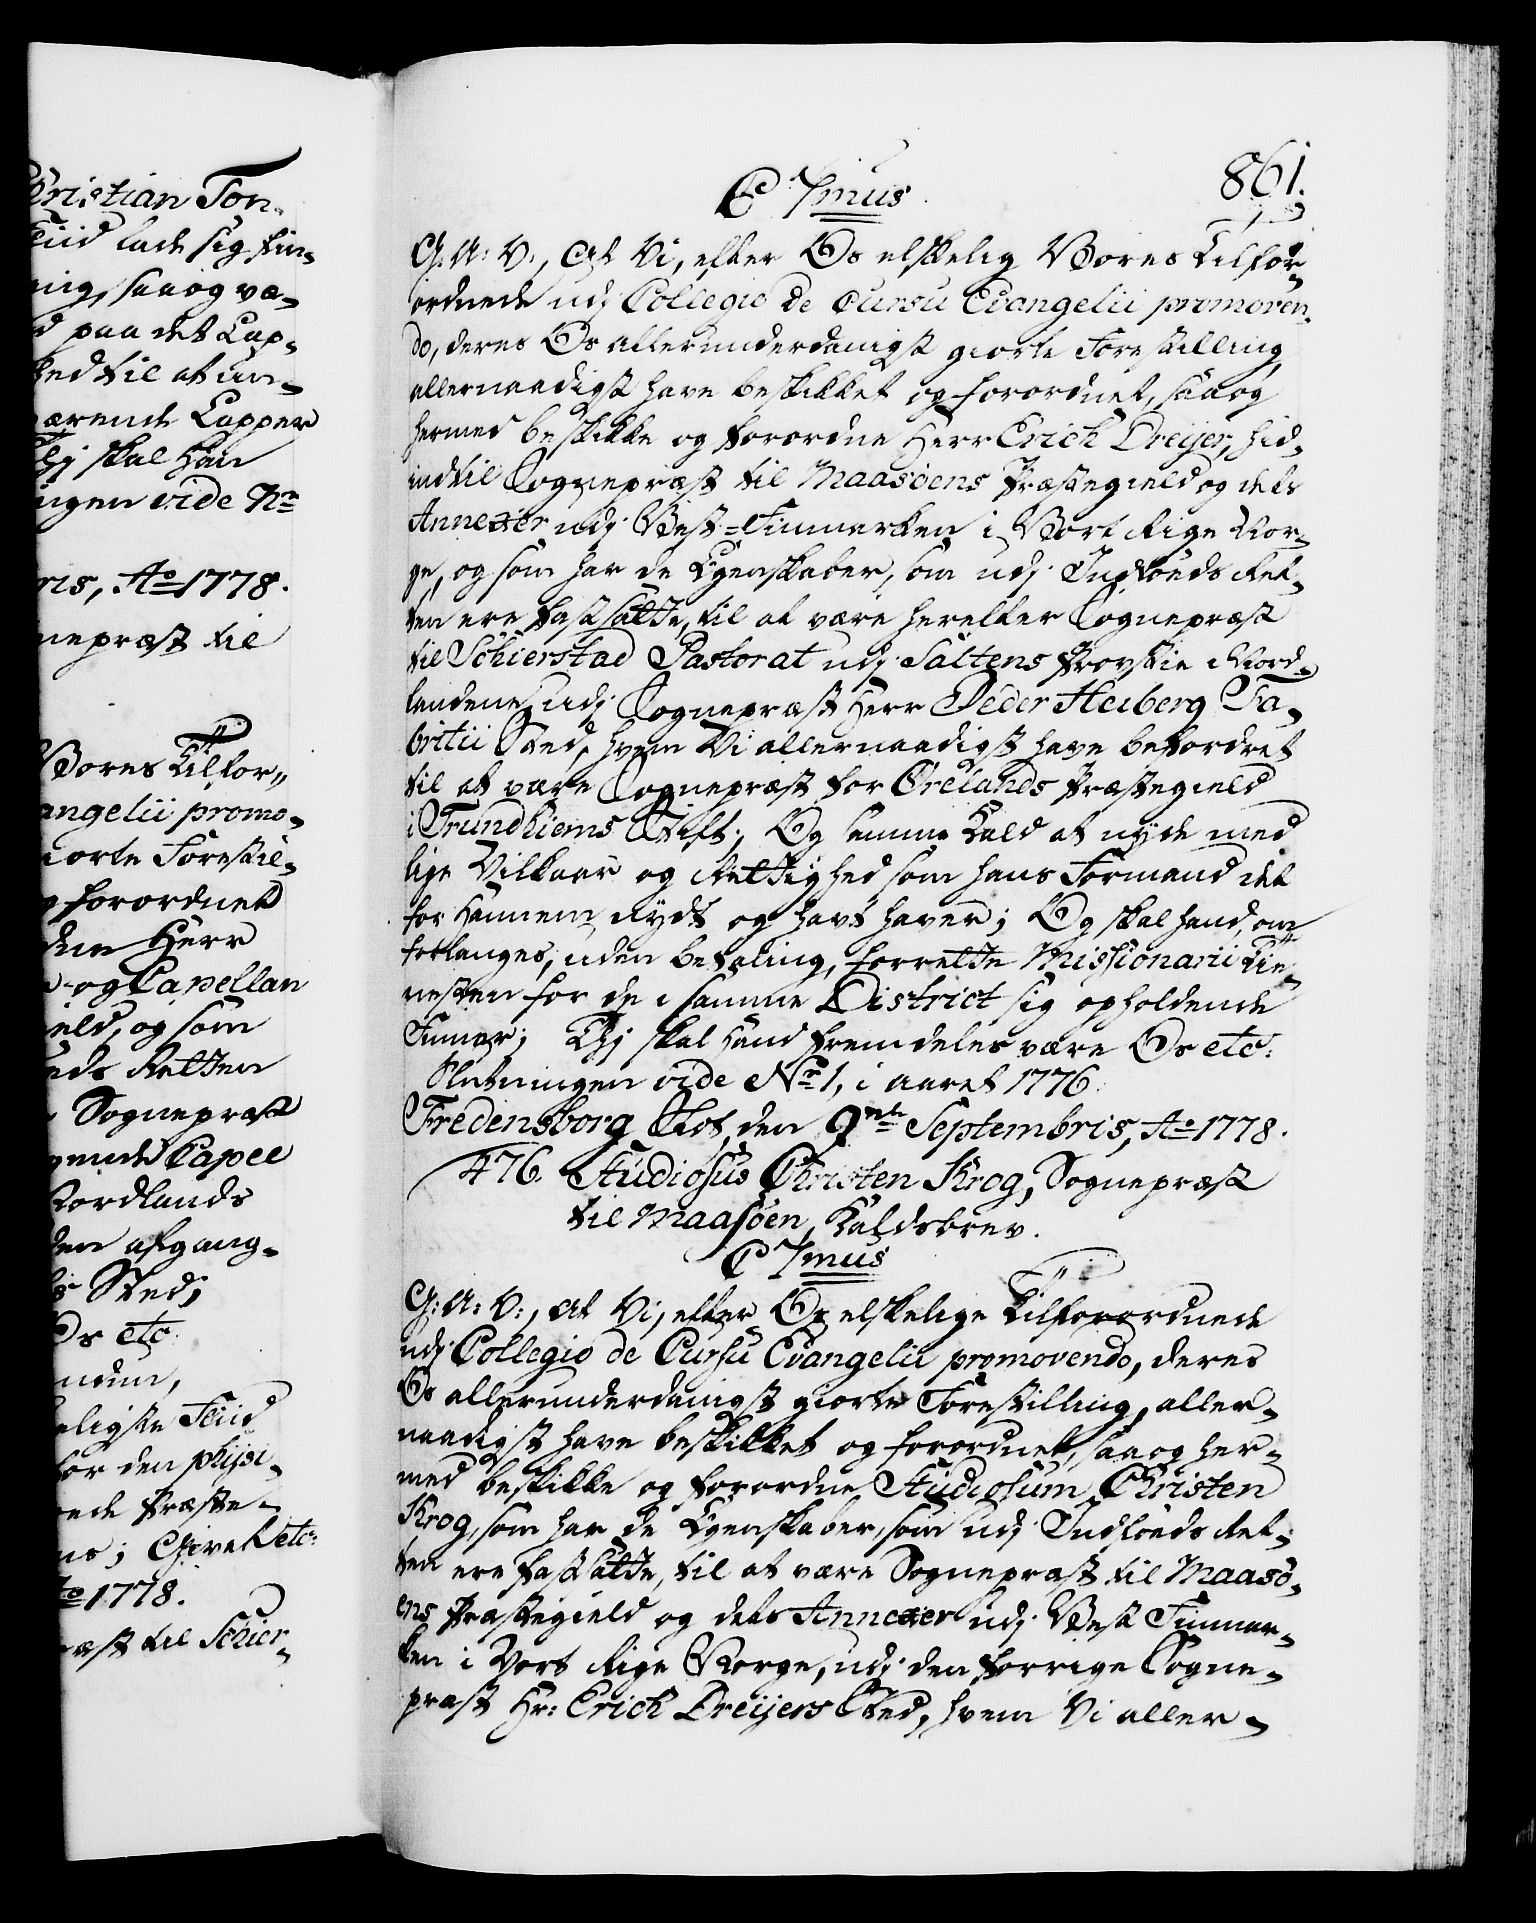 hristian Ton-
Tiid lade sig fin-
ing, saa og væ-
d paa det Lap-
ked til at un-
værende Lapper
Thj skal Han
ingen vide No
ris, Ao 1778.
nepræst til
Vores Tilfor-
angelii promo-
iorte Forestil-
forordnet
den Herr
- og Capellan
ield, og som
eds Retten
Sognepræst
gende Capel
Nordlands
den afgang-
s Sted;
Os etc.
ndum,
eligste Tiid
for den physi-
ede Præste-
ns; Givet etc:
to 1778.
æst til Schier-
861.
C 7mus
G: A: V:, At Vi, efter Os elskelig Vores Tilfor-
ordnede udj Collegio de Cursu Evangelii promoven-
do, deres Os allerunderdanigst giorte Forestilling,
allernaadigst have beskikket og forordnet, saa og
hermed beskikke og forordne Herr Erich Dreijer, hid-
indtil Sognepræst til Maasøens Præstegield og dets
Annexer udj Vest-Finmarken i Vort Rige Nor-
ge, og som har de Egenskaber, som udj Indføeds Ret-
ten ere fastsatte, til at være herefter Sognepræst
til Schierstad Pastorat udj Saltens Provstie i Nord-
landene, udj Sognepræst Herr Peder Heiberg Fa-
britii Sted, hvem Vi allernaadigst have befordret
til at være Sognepræst for Ørelands Præstegield
i Trundhiems Stift; Og samme Kald at nyde med
lige Vilkaar og Rettighed som hans Formand det
for Hannem nydt og havt haver; Og skal hand, om
forlanges, uden betaling, forrette Missionarii Tie-
nesten for de i samme District sig opholdende
Finner; Thj skal Hand fremdeles være Os etc:
Slutningen vide No 1, i aaret 1776.
Fredensborg Slot, den 9de Septembris, Ao 1778.
476. Studiosus Christen Krog, Sognepræst
til Maasøen, Kaldsbrev.
C 7mus
G: A: V:, At Vi, efter Os elskelige Tilforordnede
udj Collegio de Cursu Evangelii promovendo, deres
Os allerunderdanigst giorte Forestilling, aller-
naadigst have beskikket og forordnet, saa og her-
med beskikke og forordne Studiosum Christen
Krog, som har de Egenskaber, som udj Indføeds Ret-
ten ere fastsatte, til at være Sognepræst til Maasø-
ens Præstegield og dets Annexer udj Vest Finmar-
ken i Vort Rige Norge, udj den forrige Sogne-
præst Hr: Erich Dreijers Sted, hvem Vi aller-